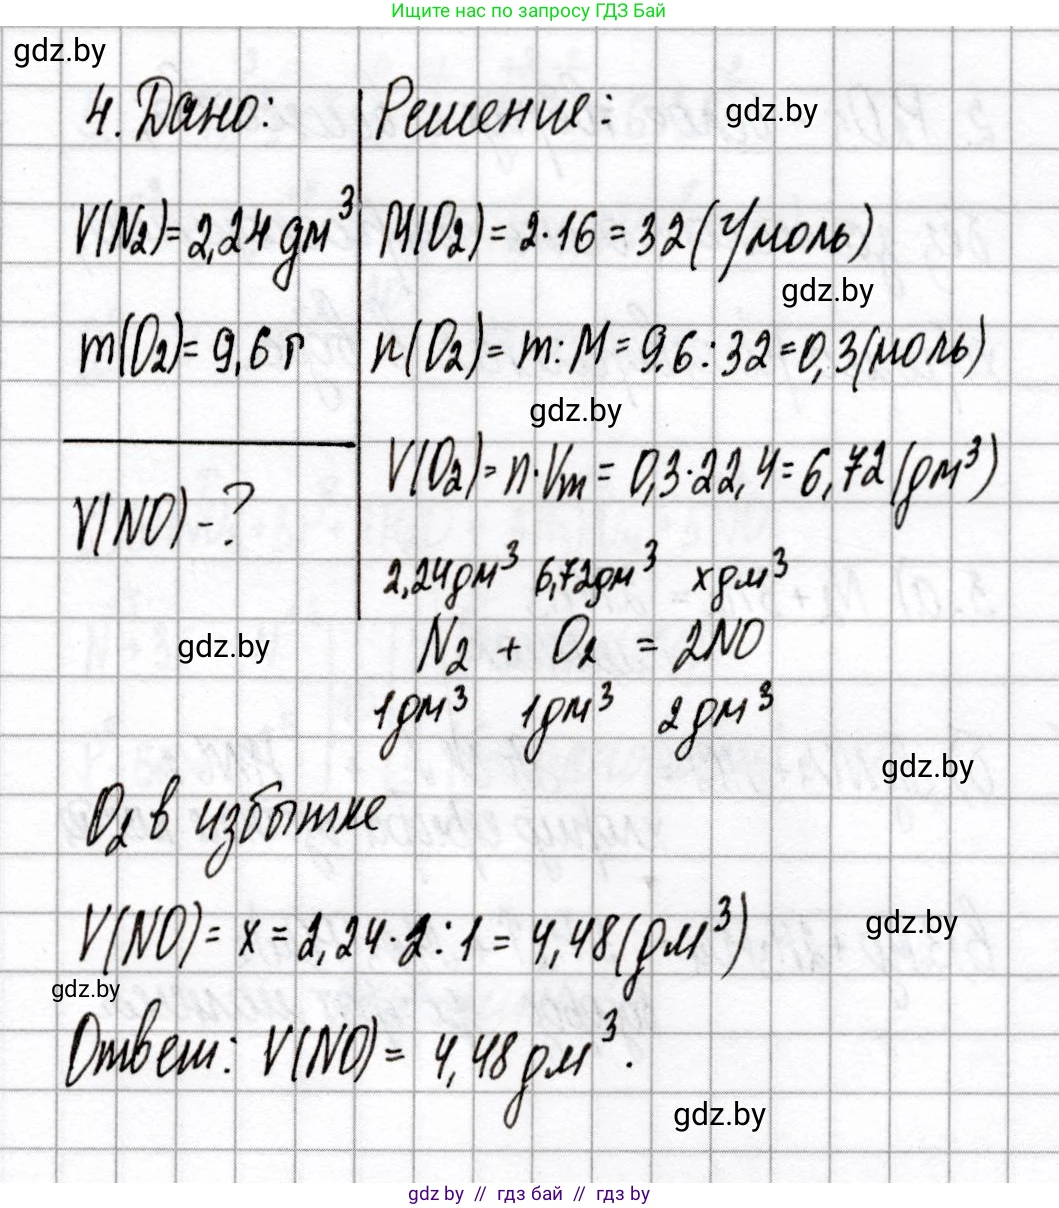 Ищите нас по запросу ГДЗ Бай
gdz.by
4. Дано:
V(N₂)=2,24 дм³
m(O₂)=9,6 г
V(NO)-?
Решение:
gdz.by
M(O₂)=2·16=32(г/моль)
gdz.by
n(O₂)=m:M=9.6:32=0,3(моль)
gdz.by
V(O₂)=n·Vm=0,3·22,4=6,72(дм³)
2,24дм³ 6,72дм³ xдм³
gdz.by
N₂ + O₂ = 2NO
1дм³ 1дм³ 2дм³
gdz.by
O₂ в избытке
V(NO)=x=2,24·2:1=4,48(дм³)
gdz.by
gdz.by
Ответ: V(NO)= 4,48дм³.
gdz.by
gdz by // гдз бай // gdz by